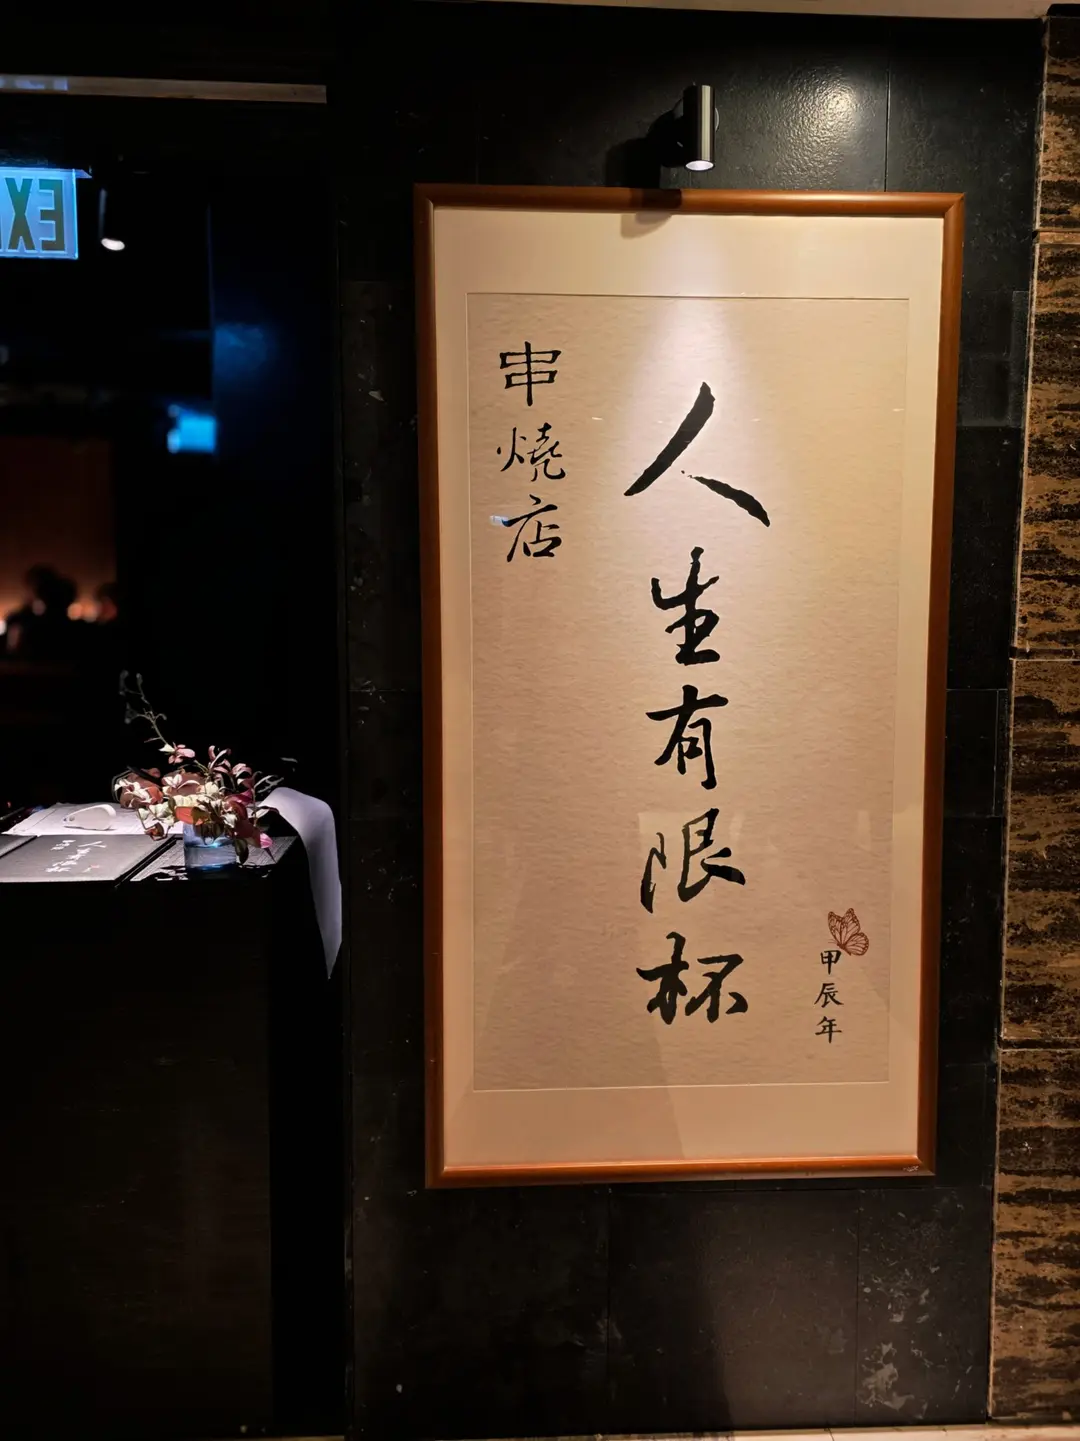 人生有限杯
串燒店
甲辰年
EX